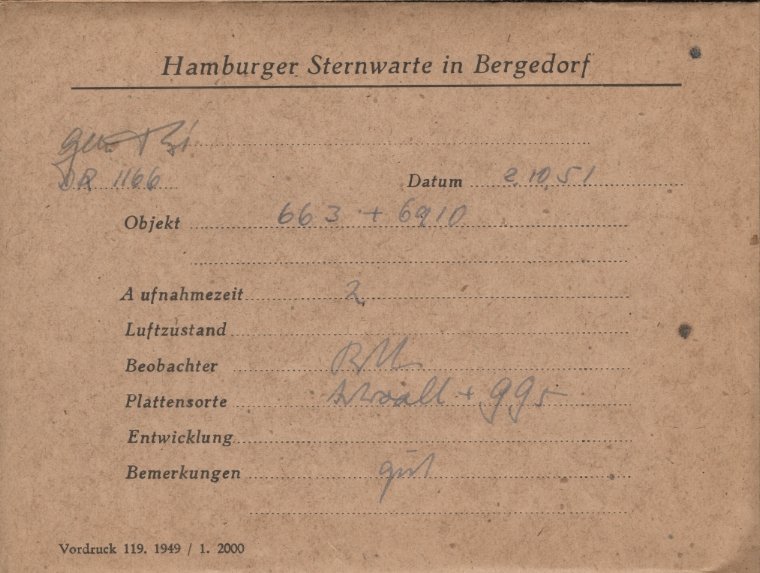 Hamburger Sternwarte in Bergedorf
DR 1166 Datum 2.10.51
Objekt 663 + 6910
Aufnahmezeit 2
Luftzustand
Beobachter
Plattensorte + 995
Entwicklung
Bemerkungen gut
Vordruck 119. 1949 / 1. 2000